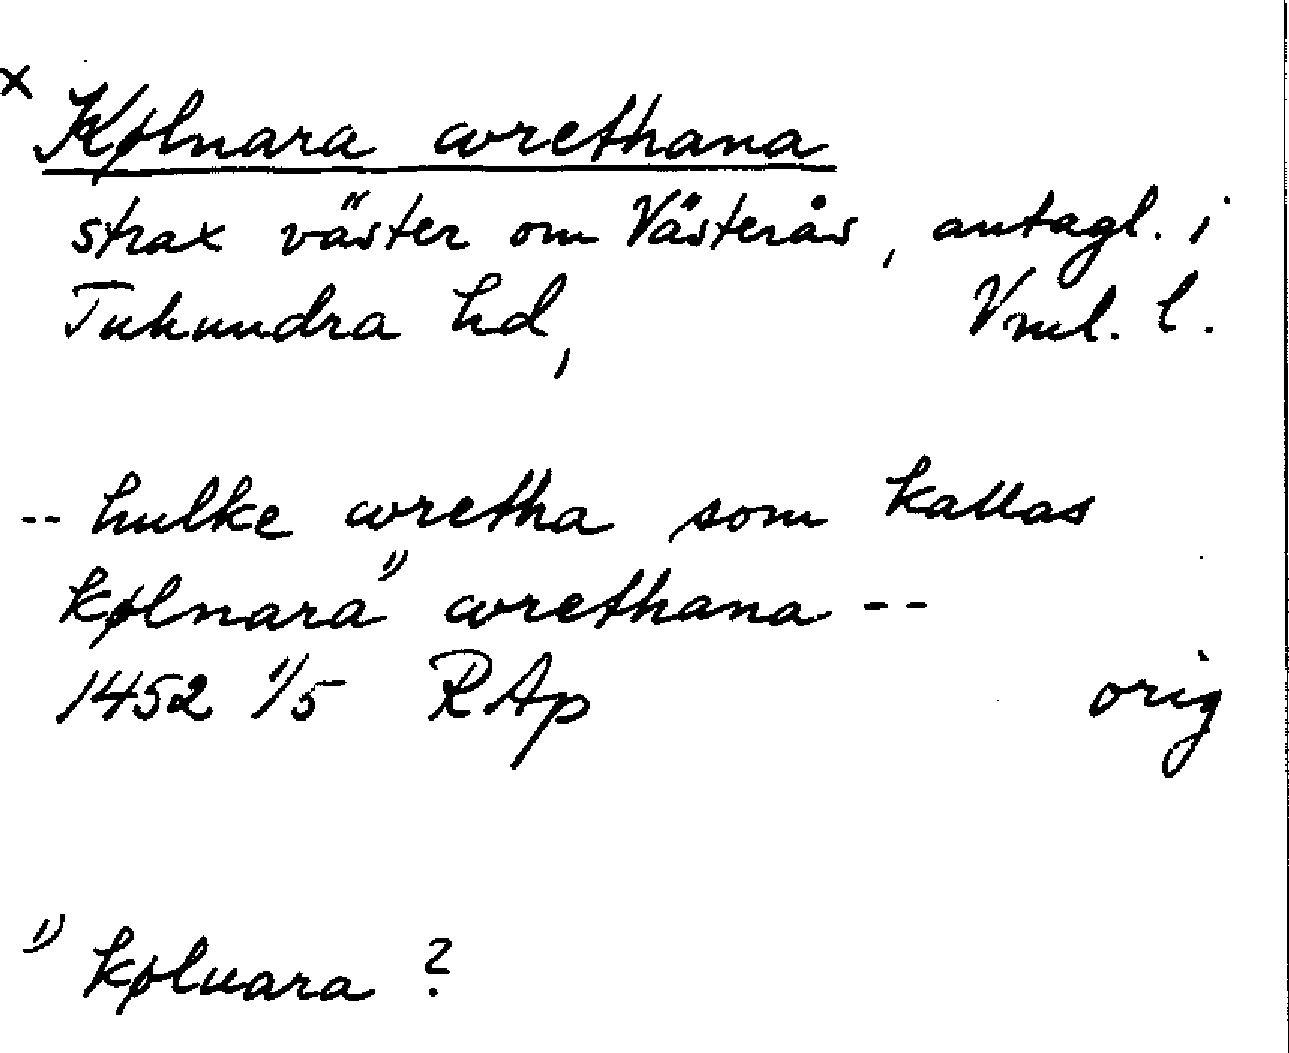 x
Kølnara wrethana
strax väster om Västerås, antagl. i
Tuhundra hd, Vml. l.
-- hulke wretha som kallas
kølnara 1) wrethana --
1452 1/5 RAp orig
1) køluara ?